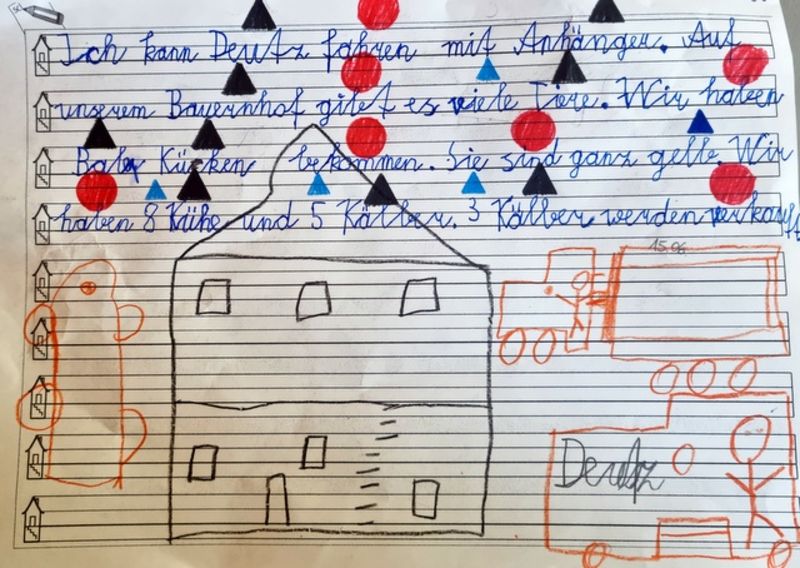 Ich kann Deutz fahren mit Anhänger. Auf
unserem Bauernhof gibt es viele Tiere. Wir haben
Baby Kücken bekommen. Sie sind ganz gelb. Wir
haben 8 Kühe und 5 Kälber. 3 Kälber werden verkauft
15.06
Deutz